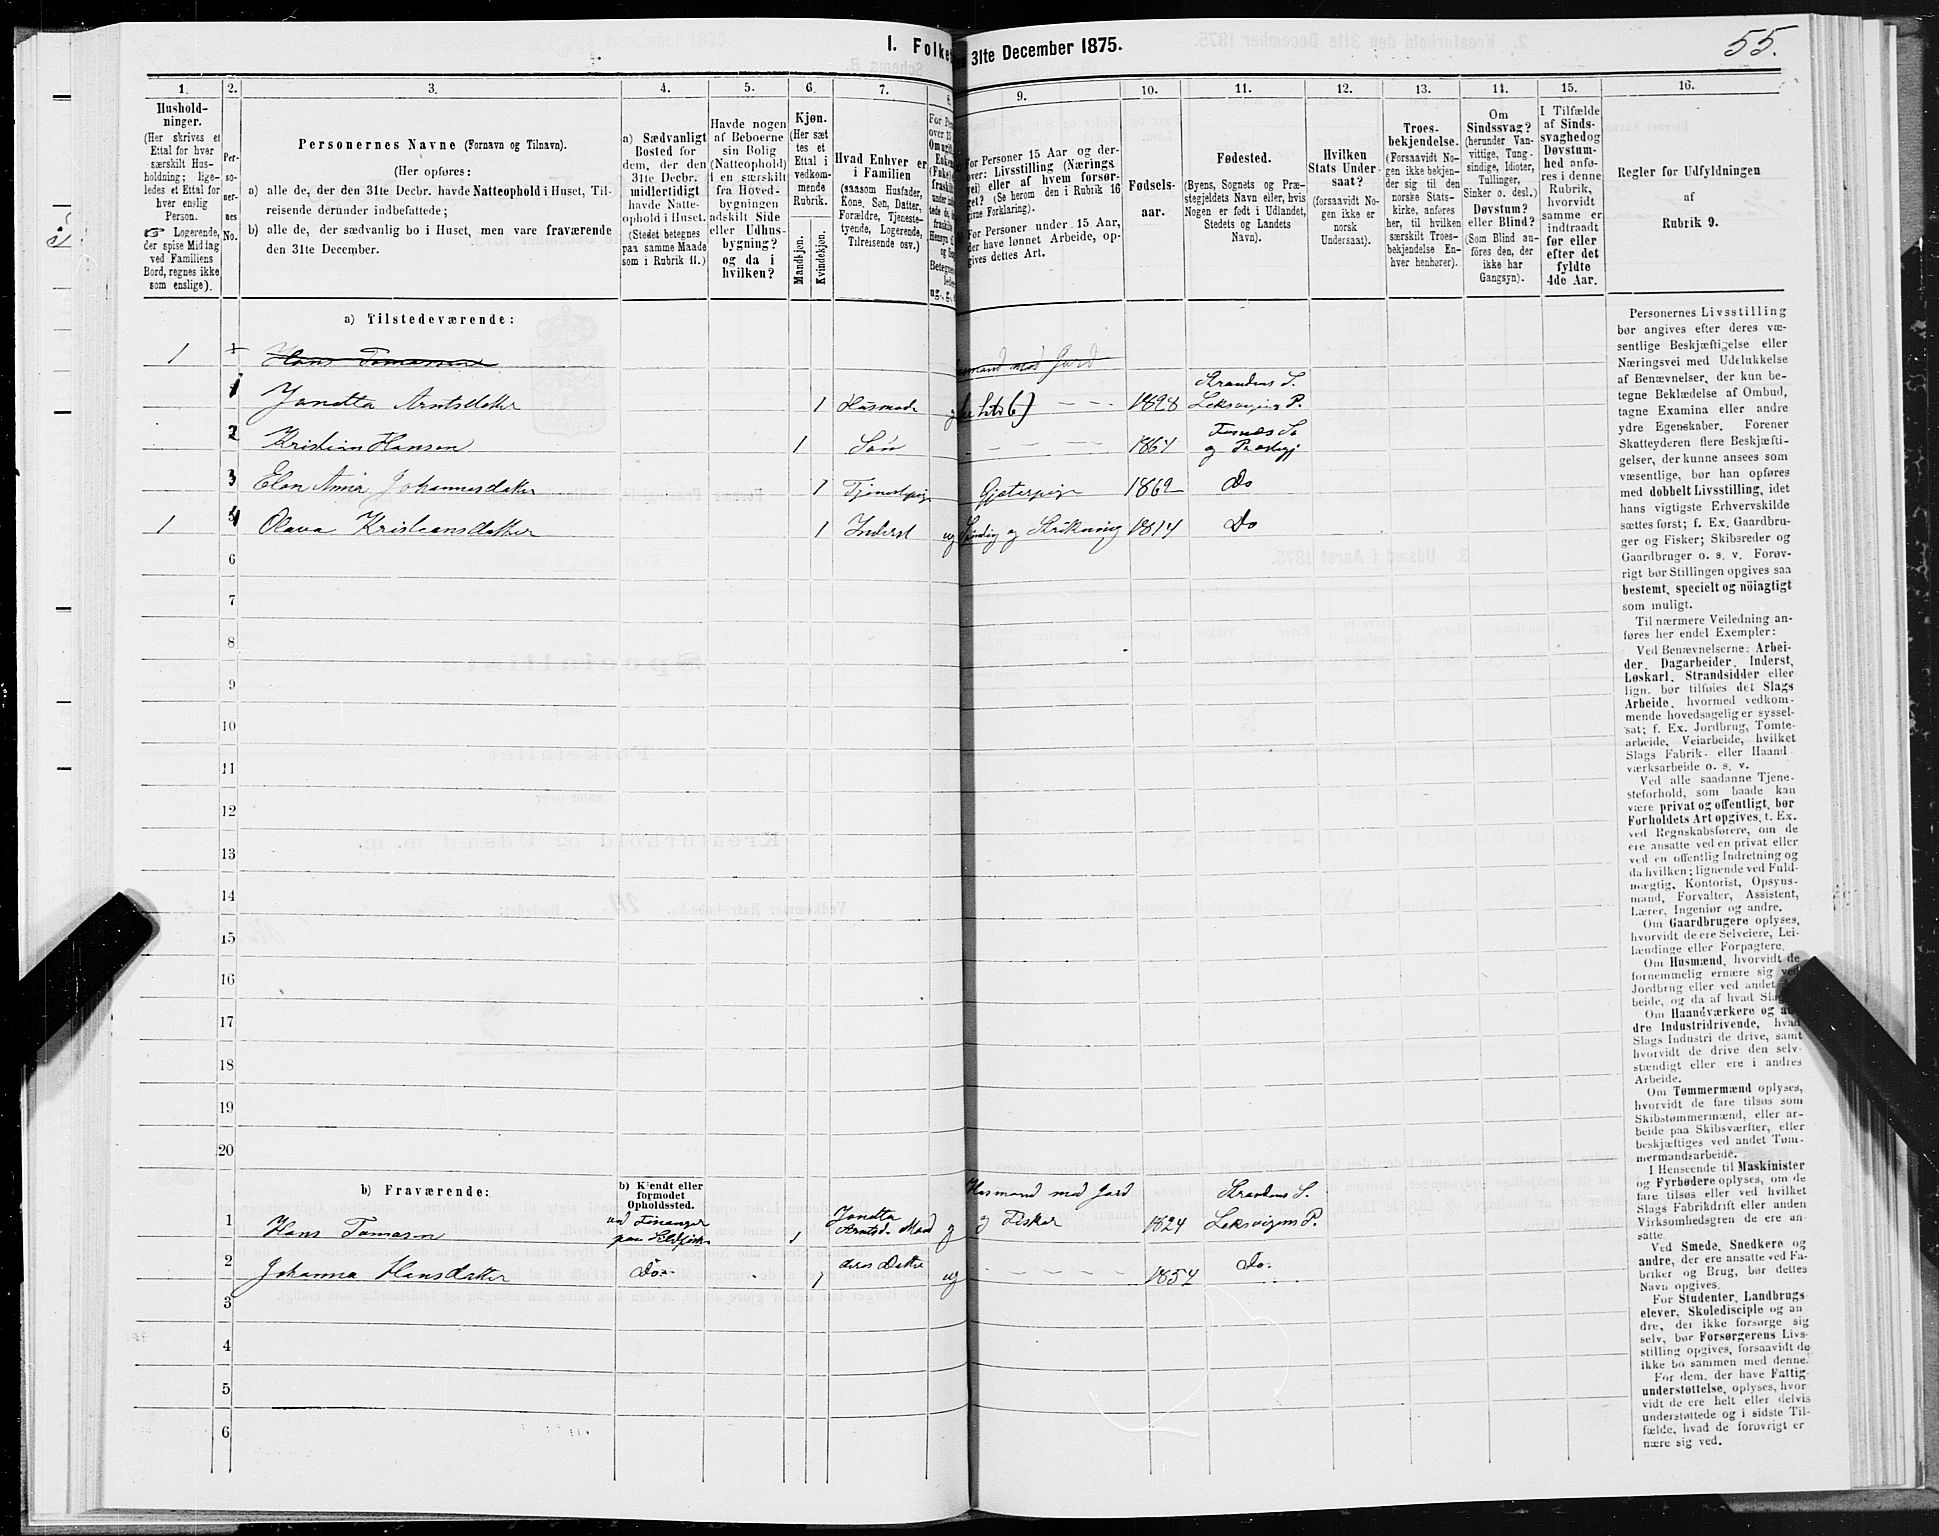 55.
I. Folke
31te December 1875.
1. 2. 3. 4. 5. 6. 7. 8. 9. 10. 11. 12. 13. 14. 15. 16.
Hushold-
ninger.
(Her skrives et
Ettal for hver
særskilt Hus-
holdning; lige-
ledes et Ettal for
hver enslig
Person.
☞ Logerende,
der spise Middag
ved Familiens
Bord, regnes ikke
som enslige).
Per-
so-
ner-
nes
No.
Personernes Navne (Fornavn og Tilnavn).
(Her opføres:
a) alle de, der den 31te Decbr. havde Natteophold i Huset, Til-
reisende derunder indbefattede;
b) alle de, der sædvanlig bo i Huset, men vare fraværende
den 31te December.
a) Sædvanligt
Bosted for
dem, der den
31te Decbr.
midlertidigt
havde Natte-
ophold i Huset.
(Stedet betegnes
paa samme Maade
som i Rubrik 11.)
Havde nogen
af Beboerne
sin Bolig
(Natteophold)
i en særskilt
fra Hoved-
bygningen
adskilt Side
eller Udhus-
bygning?
og da i
hvilken?
Kjøn.
(Her sæt
tes et
Ettal i
vedkom-
mende
Rubrik.
Mandkjøn.
Kvindekjøn.
Hvad Enhver er
i Familien
(saasom Husfader,
Kone, Søn, Datter,
Forældre, Tjeneste-
tyende, Logerende,
Tilreisende osv.)
For Personer 15 Aar og der-
over: Livsstilling (Nærings
vei) eller af hvem forsør-
get? (Se herom den i Rubrik 16
givne Forklaring).
For Personer under 15 Aar,
der have lønnet Arbeide, op-
gives dettes Art.
Fødsels-
aar.
Fødested.
(Byens, Sognets og Præ-
stegjeldets Navn eller, hvis
Nogen er født i Udlandet,
Stedets og Landets
Navn).
Hvilken
Stats Under-
saat?
(forsaavidt No-
gen ikke er
norsk
Undersaat).
Troes-
bekjendelse.
(Forsaavidt No-
gen ikke bekjen-
der sig til den
norske Stats-
kirke, anføres
her, til hvilken
særskilt Troes-
bekjendelse En-
hver henhører).
Om
Sindssvag?
(herunder Van-
vittige, Tung-
sindige, Idioter,
Tullinger,
Sinker o. desl.)
Døvstum?
eller Blind?
(Som Blind an-
föres den, der
ikke har
Gangsyn).
I Tilfælde
af Sinds-
svaghed og
Døvstum-
hed anfø-
res i denne
Rubrik,
hvorvidt
samme er
indtraadt
før eller
efter det
fyldte
4de Aar.
Regler for Udfyldningen
af
Rubrik 9.
a) Tilstedeværende:
1 1 Hans Tomasen Husmand med Jord
1 Janetta Arntsdatter 1 Husmoder g 1828 Strandens S. Leksvigens P.
2 Kristian Hansen 1 Søn 1864 Fosnæs S. og Præstegj
3 Elen Anna Johannesdatter 1 Tjenestepige Gjæterpige 1862 Do
1 4 Olava Kristiansdatter 1 Inderst ug Spinding og Strikning 1814 Do
6
7
8
9
10
11
12
13
14
15
16
17
18
19
20
b) Fraværende:
b) Kjendt eller
formodet
Opholdssted.
1 Hans Tomasen 1 Janetta Arntsd. Mand g Husmand med Jord og Fisker 1824 Strandens S. Leksvigens P.
2 Johanna Hansdatter Do 1 deres Datter ug 1854 Do.
3
4
5
6
Personernes Livsstilling
bør angives efter deres væ-
sentlige Beskjæftigelse eller
Næringsvei med Udelukkelse
af Benævnelser, der kun be-
tegne Beklædelse af Ombud,
tagne Examina eller andre
ydre Egenskaber. Forener
Skatteyderen flere Beskjæfti-
gelser, der kunne ansees som
væsentlige, bør han opføres
med dobbelt Livsstilling, idet
hans vigtigste Erhvervskilde
sættes først; f. Ex. Gaardbru-
ger og Fisker; Skibsreder og
Gaardbruger o. s. v. Forøv-
rigt bør Stillingen opgives saa
bestemt, specielt og nöiagtigt
som muligt.
Til nærmere Veiledning an-
føres her endel Exempler:
Ved Benævnelserne: Arbei-
der, Dagarbeider, Inderst,
Løskarl, Strandsidder eller
lign. bør tilføies det Slags
Arbeide, hvormed vedkom-
mende hovedsagelig er syssel-
sat; f. Ex. Jordbrug, Tomte-
arbeide, Veiarbeide, hvilket
Slags Fabrik- eller Haand
værksarbeide o. s. v.
Ved alle saadanne Tjene-
steforhold, som baade kan
være privat og offentligt, bør
Forholdets Art opgives, t. Ex.
ved Regnskabsførere, om de
ere ansatte ved en privat eller
ved en offentlig Indretning og
da hvilken; lignende ved Fuld-
mægtig, Kontorist, Opsyns-
mand, Forvalter, Assistent,
Lærer, Ingeniør og andre.
Om Gaardbrugere oplyses,
hvorvidt de ere Selveiere, Lei-
lændinge eller Forpagtere.
Om Husmænd, hvorvidt de
fornemmelig ernære sig ved
Jordbrug eller ved andet Ar-
beide, og da af hvad Slags.
Om Haandværkere og an-
dre Industridrivende, hvad
Slags Industri de drive, samt
hvorvidt de drive den selv-
stændigt eller ere i andres
Arbeide.
Om Tømmermænd oplyses,
hvorvidt de fare tilsøs som
Skibstømmermænd, eller ar-
beide paa Skibsværfter, eller
beskjæftiges ved andet Tøm-
mermandsarbeide.
I Henseende til Maskinister
og Fyrbødere oplyses, om de
fare tilsøs eller ved hvilket
Slags Fabrikdrift eller anden
Virksomhedsgren de ere an-
satte.
Ved Smede, Snedkere og
andre, der ere ansatte ved Fa-
briker og Brug, bør dettes
Navn opgives.
For Studenter, Landbrugs
elever, Skoledisciple og an
dre, der ikke forsørge sig
selv, bør Forsørgerens Livs-
stilling opgives, forsaavidt de
ikke bo sammen med denne.
For dem, der have Fattig-
understøttelse, oplyses, hvor-
vidt de ere helt eller delvis
understøttede og i sidste Til-
fælde, hvad de forøvrigt er
nære sig ved.